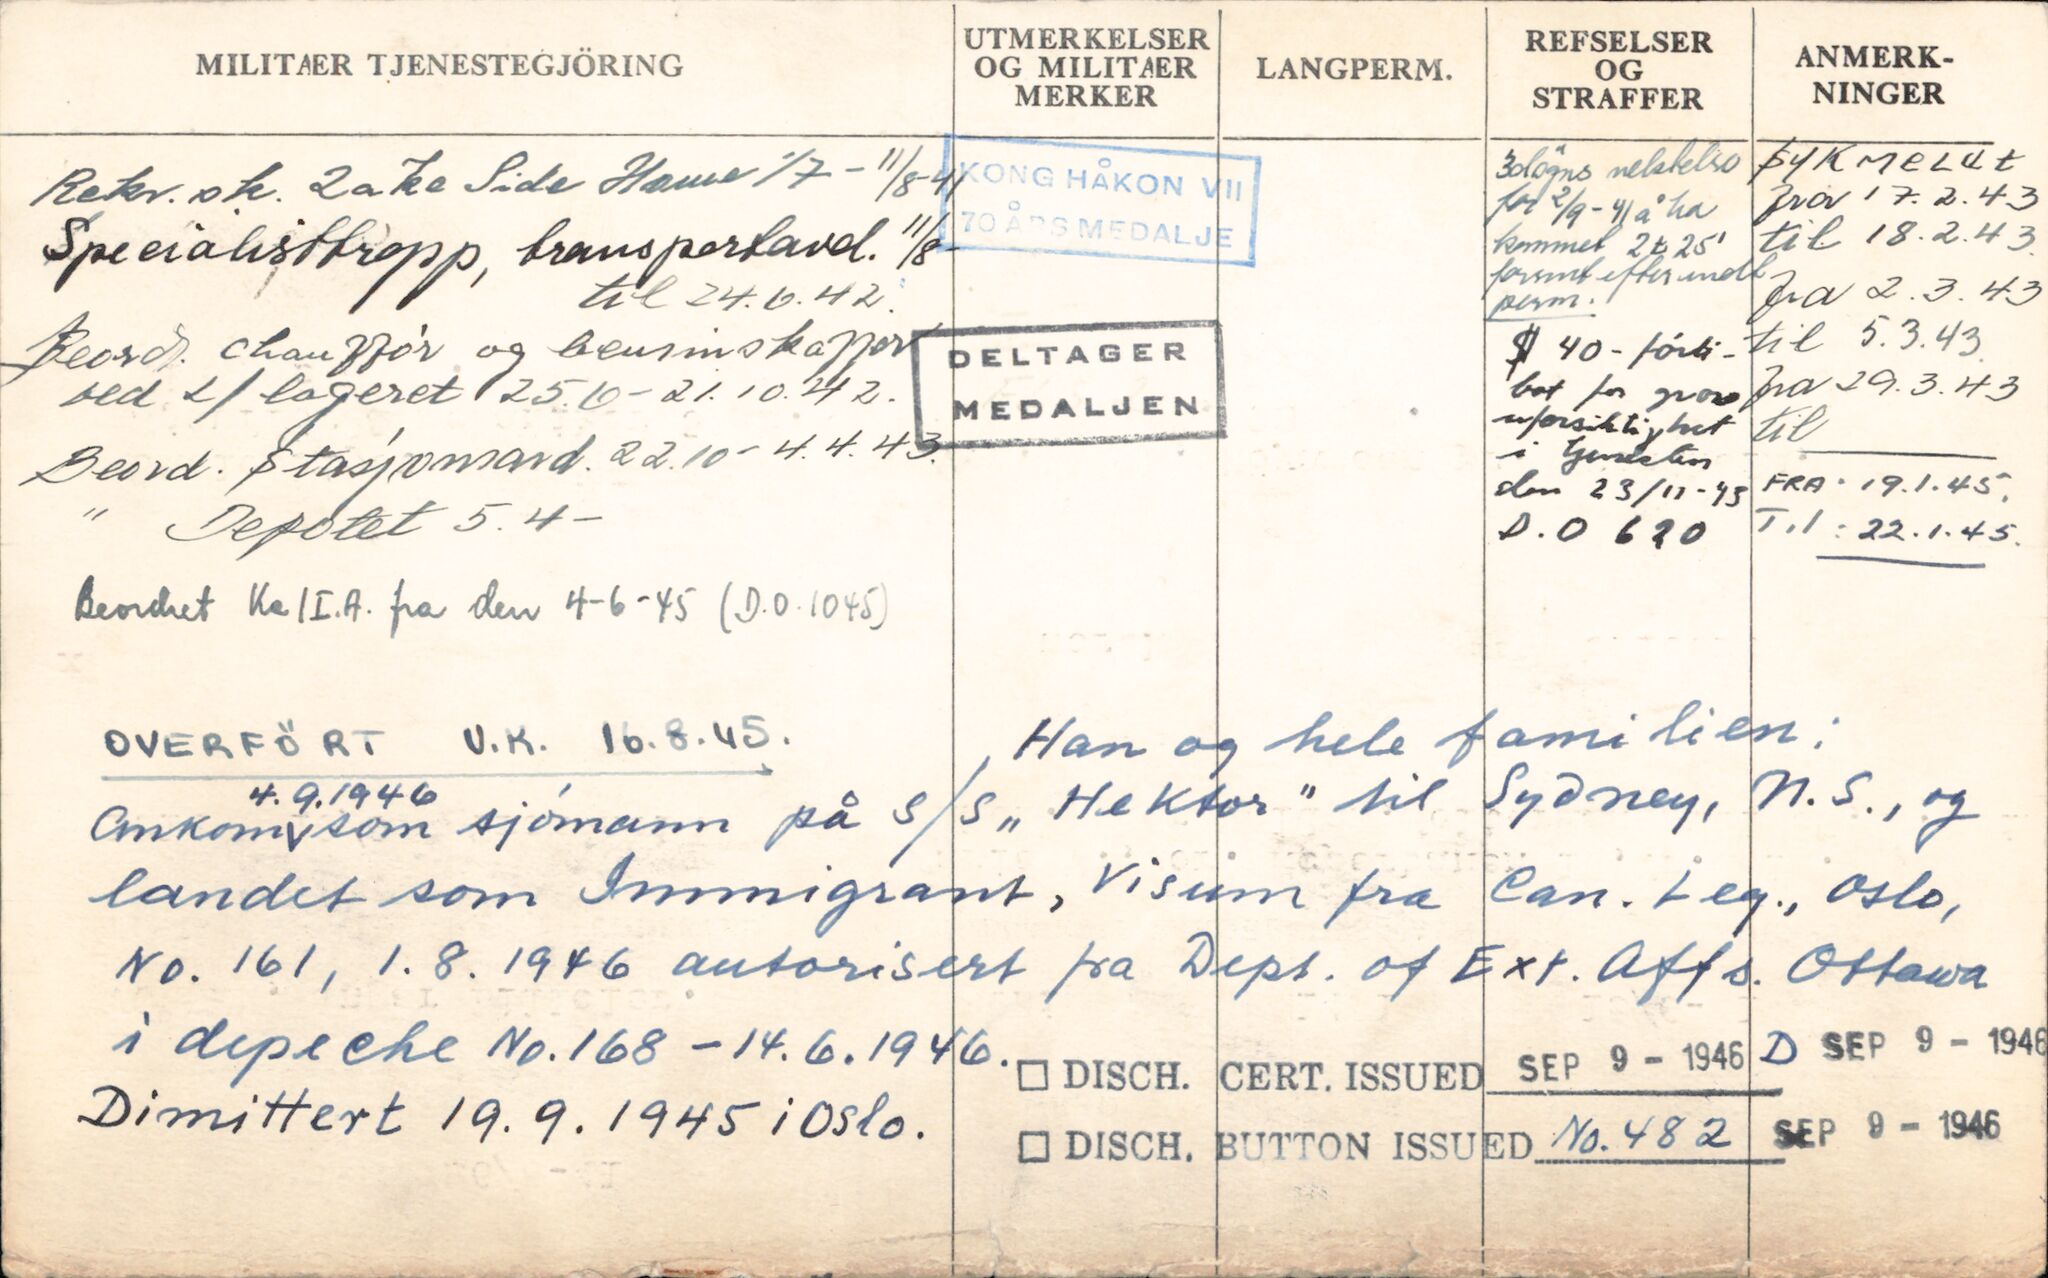 MILITÆR TJENESTEGJÖRING
UTMERKELSER
OG MILITÆR
MERKER
LANGPERM.
REFSELSER
OG
STRAFFER
ANMERK-
NINGER
Rekr. sk. Lake Side House 1/7 - 11/8-41
Specialisttropp, transportavd. 11/8-
til 24.6.42.
Beord. chaufför og bensinskaffer
ved L/ lageret 25.6 - 21.10.42.
Beord. Stasjonsavd. 22.10 - 4.4.43.
" Depotet 5.4 -
Beordret Ka/I.A. fra den 4-6-45 (D.O.1045)
KONG HÅKON VII
70 ÅRS MEDALJE
DELTAGER
MEDALJEN
3 dögns nektelse
for 2/9-41 å ha
kommet 2t 25'
forsent efter
perm.
$ 40 - förti-
bot for grov
uforsiktighet
i tjenesten
den 23/11-43
D.O 620
SYKMELDt
fra 17.2.43
til 18.2.43
fra 2.3.43
til 5.3.43
fra 29.3.43
til
FRA: 19.1.45.
Til: 22.1.45.
OVERFÖRT V.K. 16.8.45.
Han og hele familien;
4.9.1946
Ankom som sjömann på s/s „Hektor" til Sydney, N.S., og
landet som Immigrant, Visum fra Can. Leg., Oslo,
No. 161, 1.8.1946 autorisert fra Dept. of Ext. Affs. Ottawa
i depeche No. 168 - 14.6.1946.
Dimittert 19.9.1945 i Oslo.
□ DISCH. CERT. ISSUED SEP 9 - 1946 D SEP 9 - 1946
□ DISCH. BUTTON ISSUED No. 482 SEP 9 - 1946